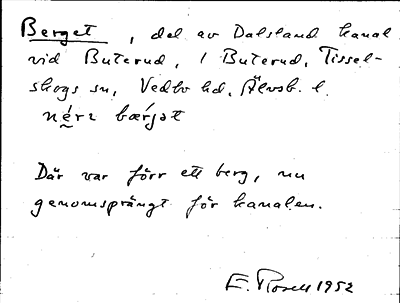 Berget, del av Dalsland kanal
vid Buterud, / Buterud, Tissel-
skogs sn, Vedbo hd, Älvsb. l.
nérə bærjət
Där var förr ett berg, nu
genomsprängt för kanalen.
E. Rosell 1952